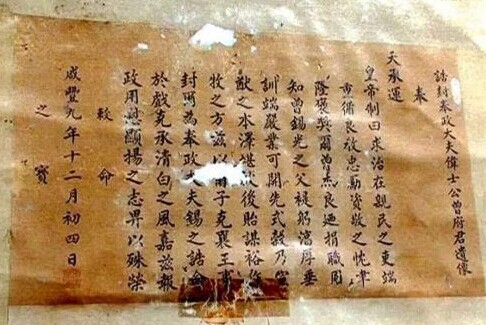 誥封奉政大夫偉士公曾府君遺像
奉
天承運
皇帝制曰求治在親民之吏端
重循良教忠勵資敬之忱聿
隆褒獎爾曾杰良迺捐職同
知曾錫光之父褆躬淳厚垂
訓端嚴業可開先式穀乃宣
猷之本澤堪後貽謀裕作
牧之方茲以爾子克襄王事
封爾為奉政大夫錫之誥命
於戲克承清白之風嘉茲報
政用慰顯揚之志畀以殊榮
敕命
咸豐九年十二月初四日
之寶